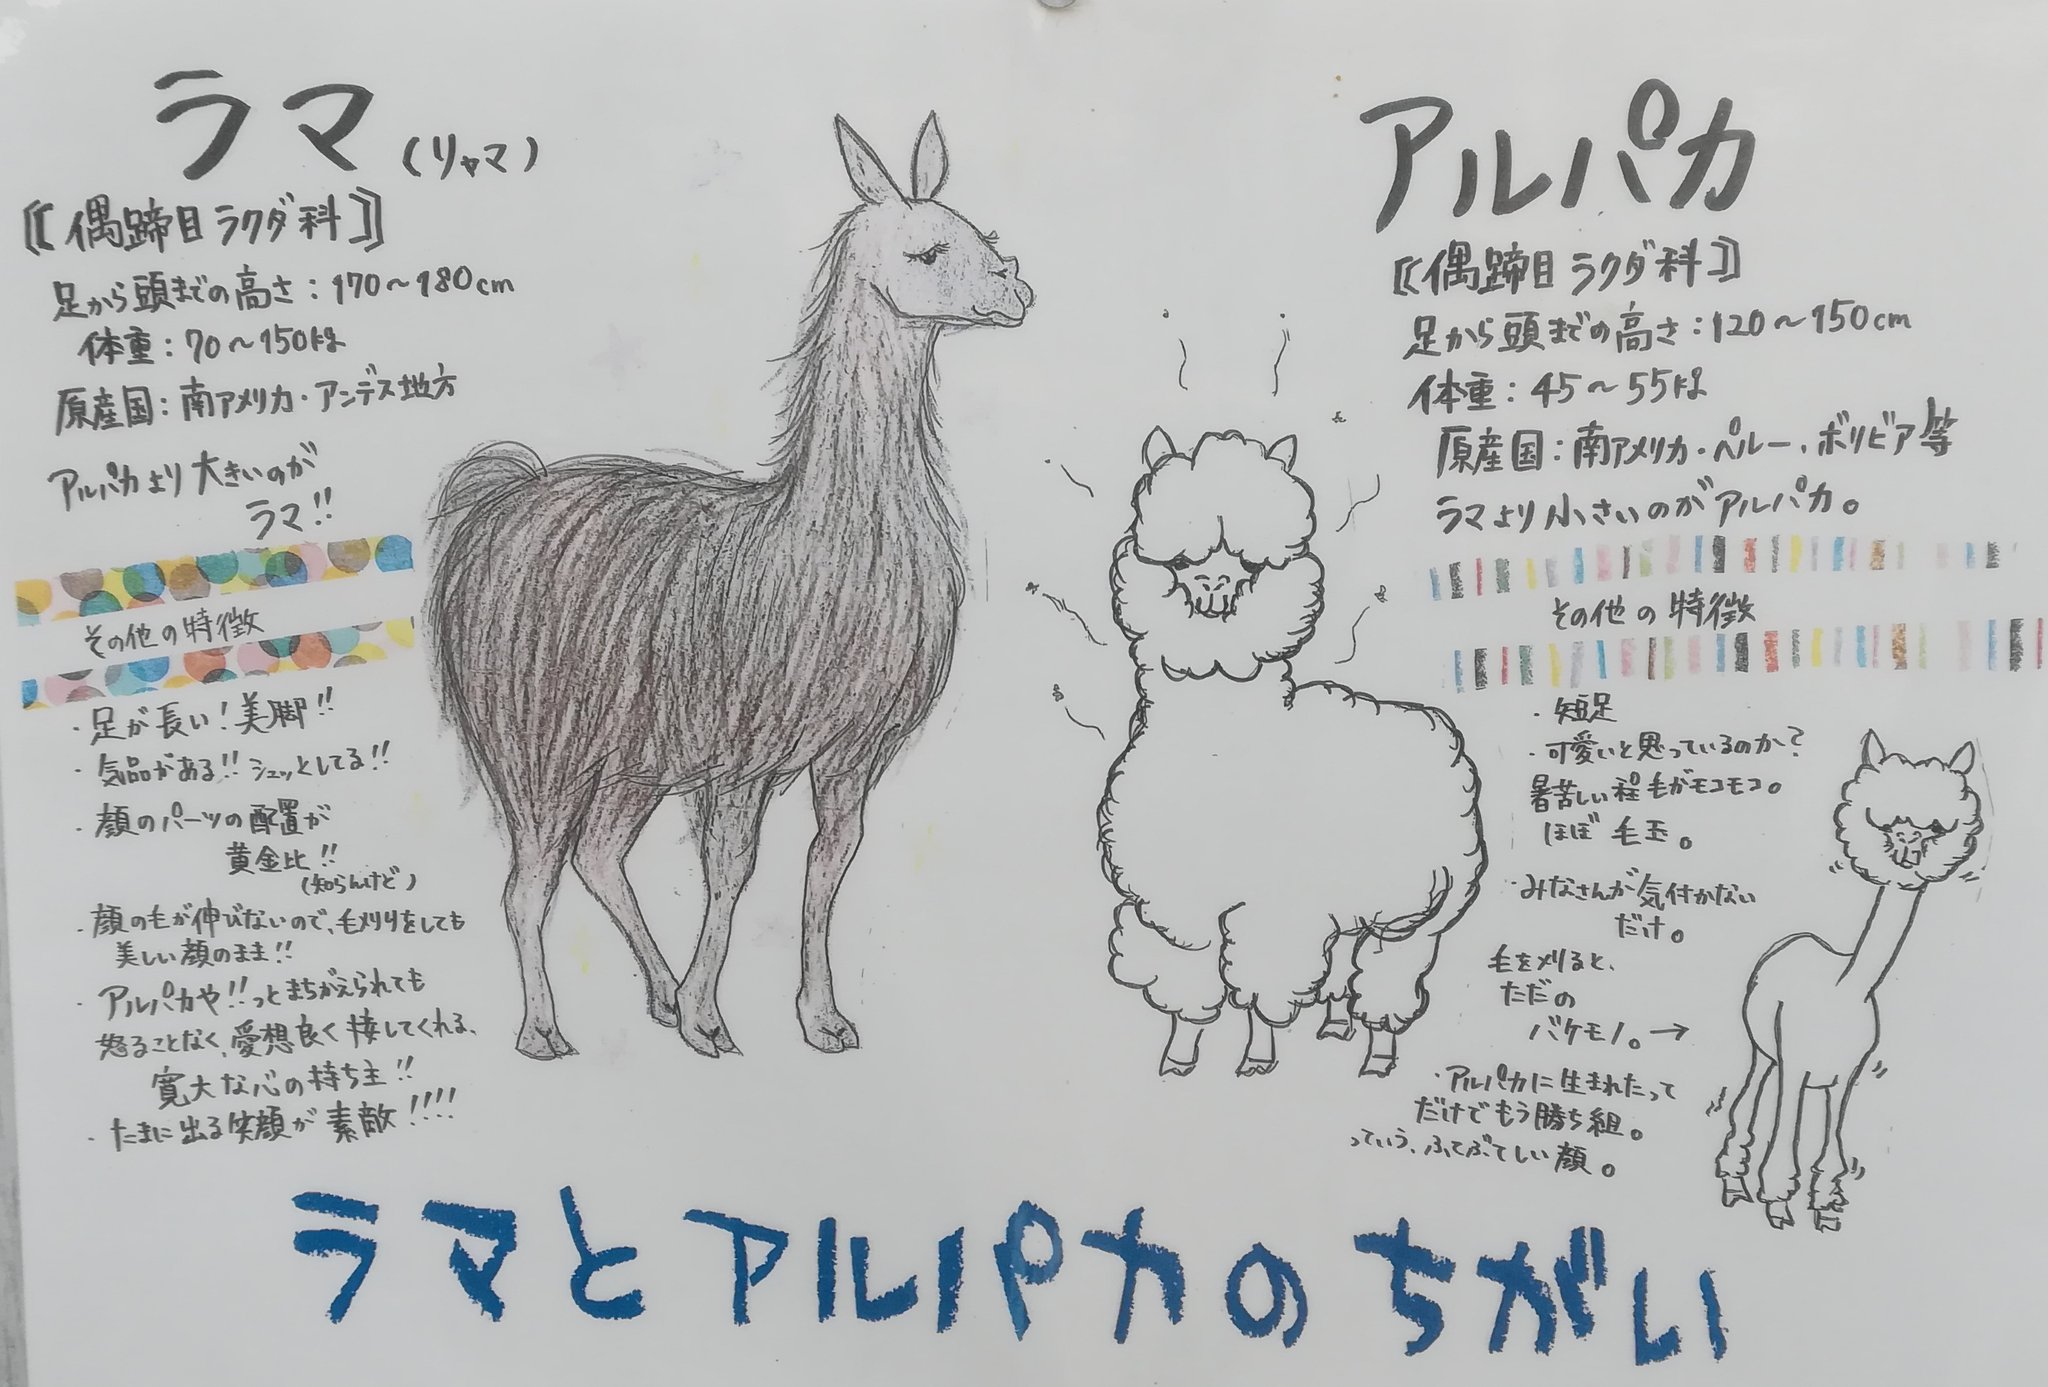 ラマ(リャマ)
《偶蹄目ラクダ科》
足から頭までの高さ:170~180cm
体重:70~150kg
原産国:南アメリカ・アンデス地方
アルパカより大きいのが
ラマ!!
その他の特徴
・足が長い!美脚!!
・気品がある!!シュッとしてる!!
・顔のパーツの配置が
黄金比!!
(知らんけど)
・顔の毛が伸びないので、毛刈りをしても
美しい顔のまま!!
・アルパカや!!っとまちがえられても
怒ることなく、愛想良く接してくれる、
寛大な心の持ち主!!
・たまに出る笑顔が素敵!!!!
アルパカ
《偶蹄目ラクダ科》
足から頭までの高さ:120~150cm
体重:45~55kg
原産国:南アメリカ・ペルー、ボリビア等
ラマより小さいのがアルパカ。
その他の特徴
・短足
・可愛いと思っているのか?
暑苦しい程毛がモコモコ。
ほぼ毛玉。
・みなさんが気付かない
だけ。
毛を刈ると、
ただの
バケモノ。→
・アルパカに生まれたって
だけでもう勝ち組。
っていう、ふてぶてしい顔。
ラマとアルパカのちがい